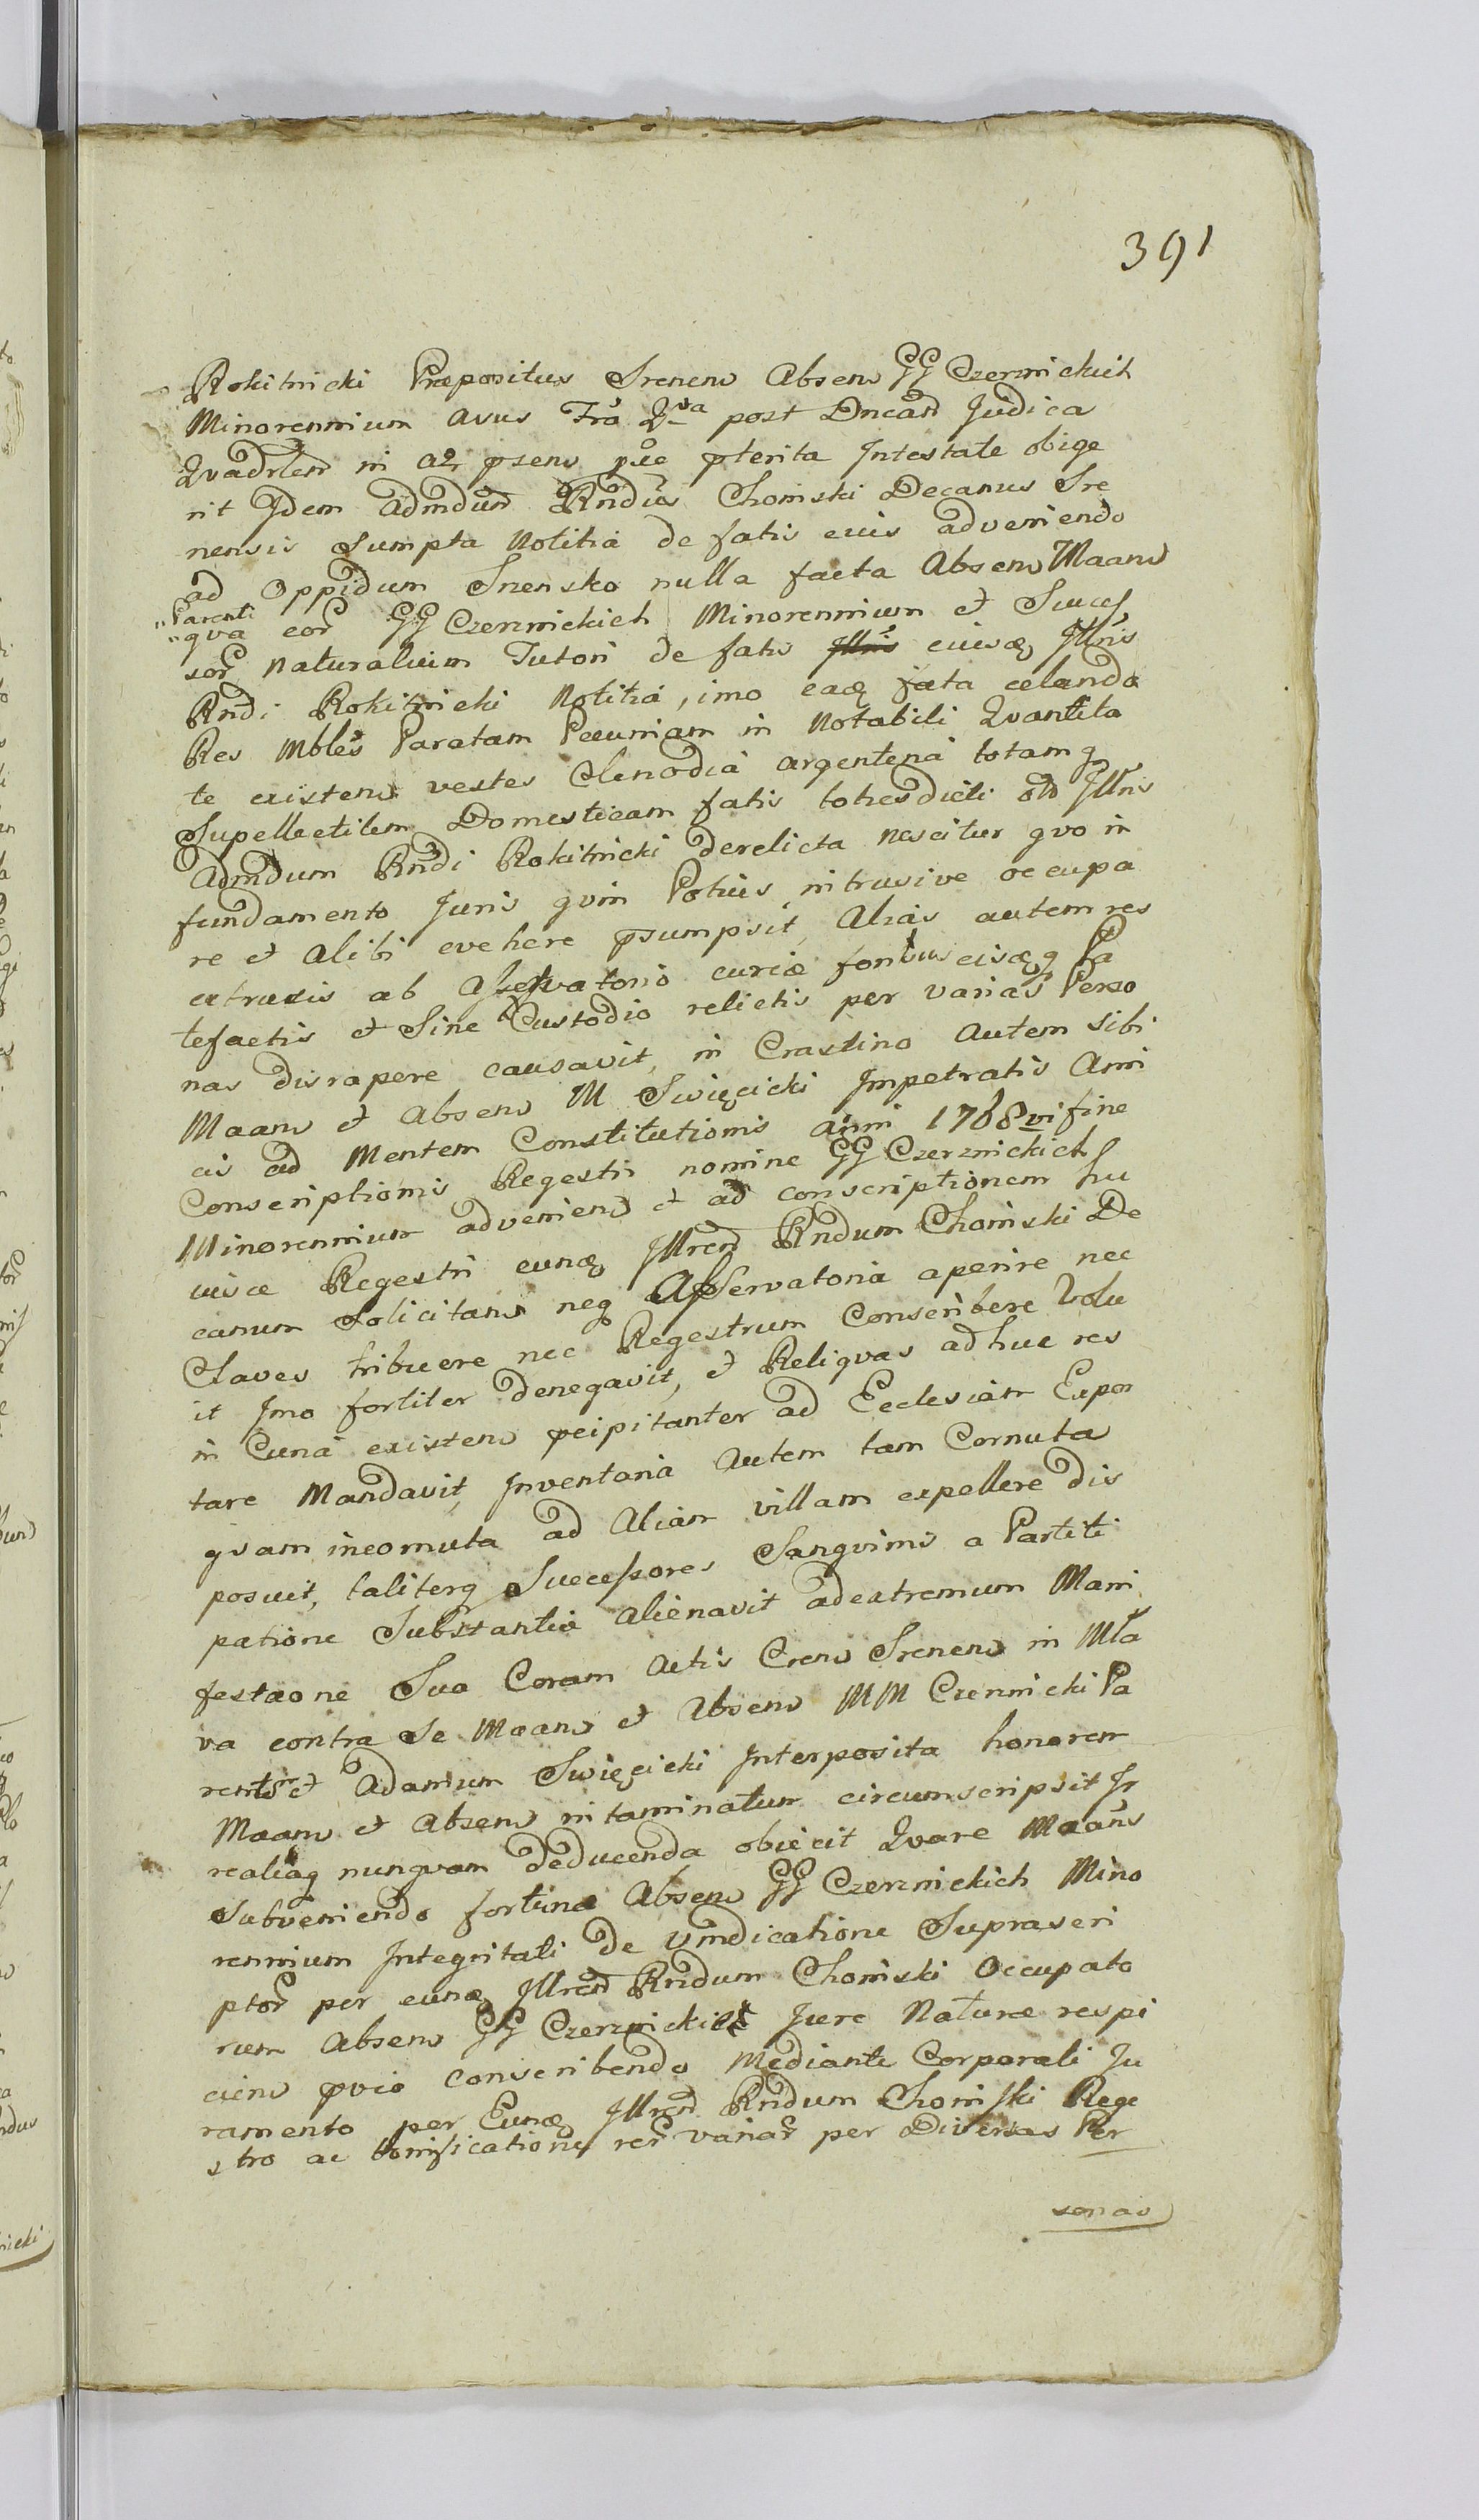 391
Rokitnicki Præpositus Srenens Absens GG Czerznickich
Minorennium avus Fra Qva post Dncam Judica
Qvadrlem in ao psens pxe pterita Intestate obige
rit Idem admdum Rndus Choinski Decanus Sre
nensis Sumpta Notitia de fatis eius adveniendo
ad Oppidum Srensko nulla facta Absens Maans
"Parenti
"qva eor GG Czerznickich Minorennium et Succes
sor Naturalium Tutori de fatis Illris eiusdq Illris
Rndi Rokitnicki Notitia, imo eadq fata celando
Res Mbles Paratam Pecuniam in Notabili Qvantita
te existens vestes Clenodia argentena totamq
Supellectilem Domesticam fatis totiesdicti olo Illris
Admdum Rndi Rokitnicki derelicta nescitur qvo in
fundamento Juris qvin Potius intrusive occupa
re et alibi evehere psumpsit, Alias autem res
extraxis ab Asservatorio curiæ foribus eisqq Pa
tefactis et Sine Custodio relictis per varias Perso
nas disrapere causavit, in Crastino autem sibi
Maans et absens M Swięcicki Impetratis Ami
cis ad Mentem Constitutionis anni 1768 vi fine
Conscriptionis Regestri nomine GG Czerznickich
Minorennium adveniens et ad conscriptionem hu
iusce Regestri eundq Illrem Rndum Choinski De
canum Solicitans neq Asservatoria aperire nec
Claves tribuere nec Regestrum Conscribere Volu
it Imo fortiter denegavit, et Reliqvas adhuc res
in Curia existens pcipitanter ad Ecclesiam Expor
tare Mandavit, Inventaria autem tam Cornuta
qvam incornuta ad Aliam villam expellere dis
posuit, taliterq Successores Sangvinis a Partiti
patione Substantiæ alienavit ad extremum Mani
festaone Sua Coram Actis Crens Srenens in Mla
va contra Se Maans et Absens MM Czernicki Pa
rents et Adamum Swięcicki Interposita honorem
Maans et Absens intaminatum circumscripsit Ir
realiaq nunqvam deducenda obiecit Qvare Maans
Subveniendo fortunæ Absens GG Czerznickich Mino
rennium Integritati de Vindicatione Suprascri
ptor per eundq Illrem Rndum Choinski Occupato
rum Absens GG Czerznickich Jure Naturæ respi
ciens pvio conscribendo Mediante Corporali Ju
ramento per Eundq Illrem Rndum Choinski Rege
stro ac bonificatione rer variar per Diversas Per
sonas